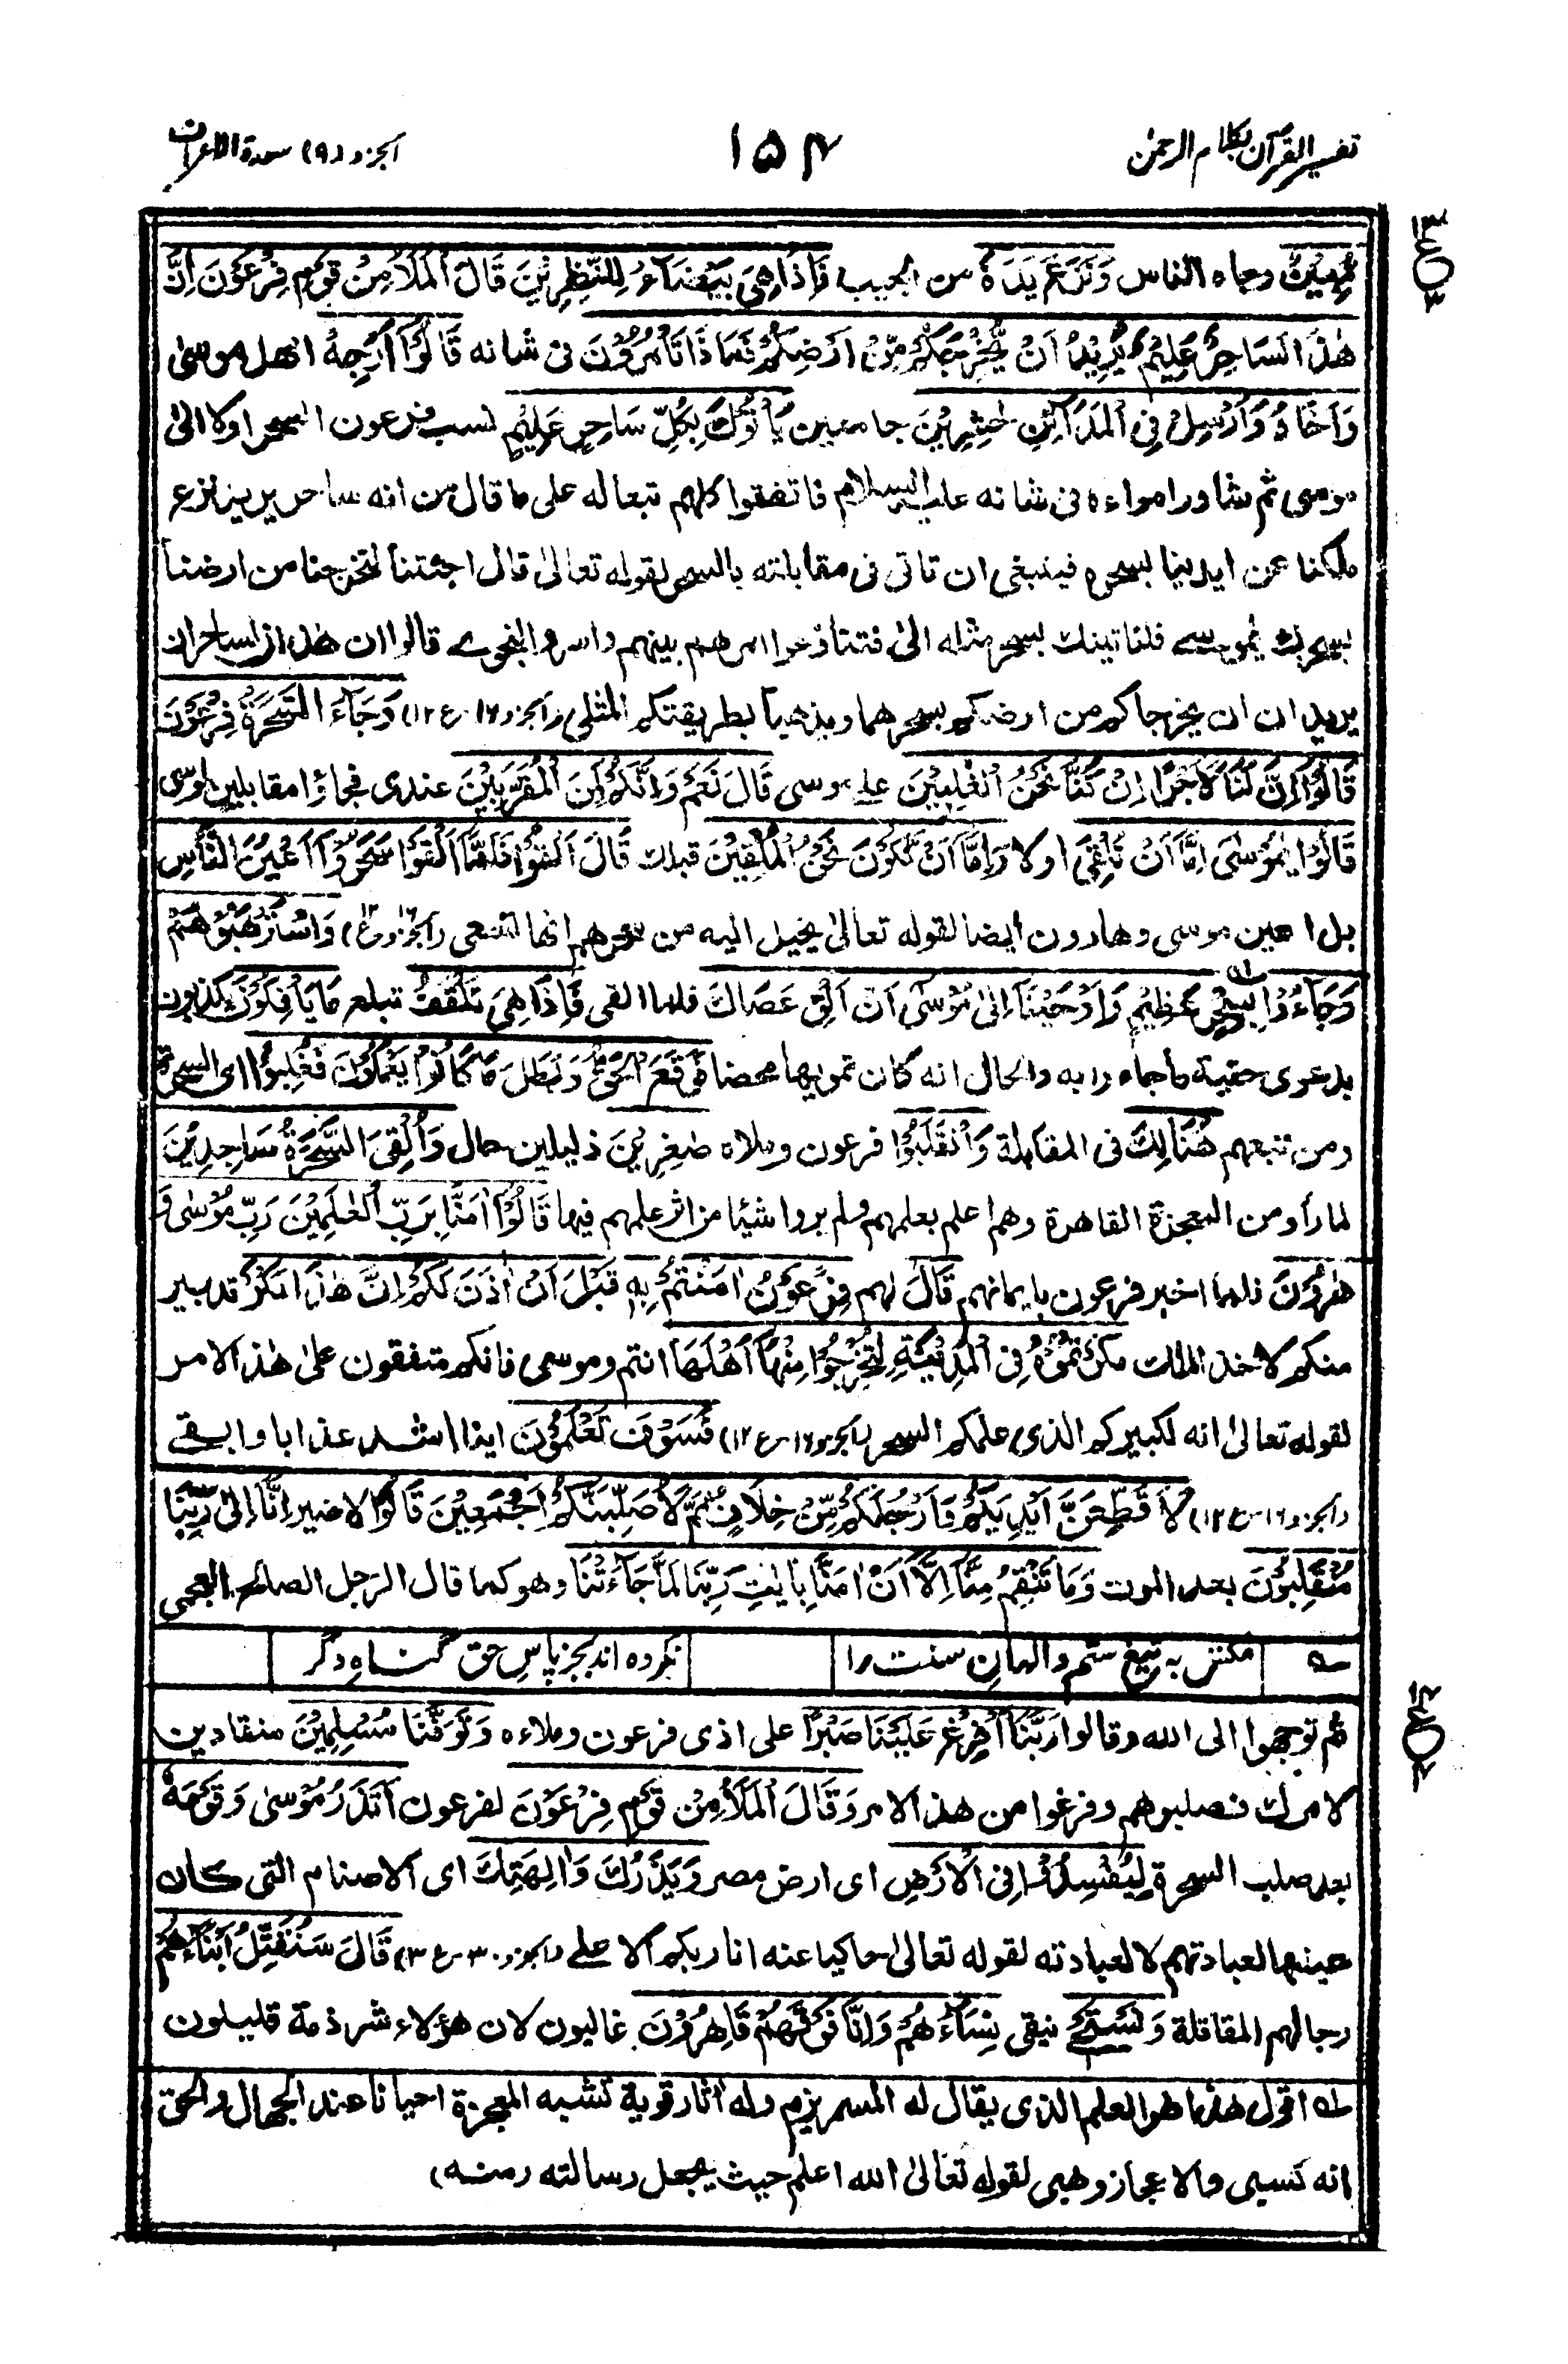 تفسیر القرآن بکلام الرحمن
۱۵۴
الجزء (۹) سورة الاعراف
مُّبِيْنٌ وجاه الناس وَنَزَعَ يَدَهٗ من الجيب فَاِذَا هِيَ بَيْضَآءُ لِلنّٰظِرِيْنَ قَالَ الْمَلَاُ مِنْ قَوْمِ فِرْعَوْنَ اِنَّ
هٰذَا لَسَاحِرٌ عَلِيْمٌ يُّرِيْدُ اَنْ يُّخْرِجَكُمْ مِّنْ اَرْضِكُمْ فَمَا ذَا تَاْمُرُوْنَ فی شانه قَالُوْۤا اَرْجِهْ امهل موسیٰ
وَاَخَاهُ وَاَرْسِلْ فِي الْمَدَآئِنِ حٰشِرِيْنَ جامعين يَاْتُوْكَ بِكُلِّ سَاحِرٍ عَلِيْمٍ نسب فرعون السحر اولا الیٰ
موسی ثم شاور امراءه فی شانه علیه السلام فاتفقوا كلهم تبعا له علی ما قال من انه ساحر یرید نزع
ملكنا عن ایدینا بسحره فینبغی ان تاتی فی مقابلته بالسحر لقوله تعالیٰ قال اجئتنا لتخرجنا من ارضنا
بسحرك یٰموسے فلناتینك بسحر مثله الیٰ فتنازعوا امرهم بینهم واسروا النجوے قالوا ان هٰذان لساحران
یریدان ان یخرجاكم من ارضكم بسحرهما ویذهبا بطریقتكم المثلی (الجزء ۱۶-ع ۱۲) وَجَآءَ السَّحَرَةُ فِرْعَوْنَ
قَالُوْۤا اِنَّ لَنَا لَاَجْرًا اِنْ كُنَّا نَحْنُ الْغٰلِبِيْنَ علی موسی قَالَ نَعَمْ وَاِنَّكُمْ لَمِنَ الْمُقَرَّبِيْنَ عندی فجاؤا مقابلین لموسی
قَالُوْا يٰمُوْسٰۤى اِمَّاۤ اَنْ تُلْقِيَ اولا وَاِمَّاۤ اَنْ نَّكُوْنَ نَحْنُ الْمُلْقِيْنَ قبلك قَالَ اَلْقُوْا فَلَمَّاۤ اَلْقَوْا سَحَرُوْۤا اَعْيُنَ النَّاسِ
بل اعین موسی وهارون ایضا لقوله تعالیٰ یخیل الیه من سحرهم انها تسعی (الجزء ۱۶ ع ۱۲) وَاسْتَرْهَبُوْهُمْ
وَجَآءُوْا بِسِحْرٍ ؎ عَظِيْمٍ وَاَوْحَيْنَاۤ اِلٰى مُوْسٰۤى اَنْ اَلْقِ عَصَاكَ فلما القی فَاِذَا هِيَ تَلْقَفُ تبلع مَا يَاْفِكُوْنَ یكذبون
بدعوی حقیة ما جاءوا به والحال انه كان تمویها محضا فَوَقَعَ الْحَقُّ وَبَطَلَ مَا كَانُوْا يَعْمَلُوْنَ فَغُلِبُوْا ای السحرة
ومن تبعهم هُنَالِكَ فی المقابلة وَانْقَلَبُوْا فرعون وملاه صٰغِرِيْنَ ذلیلین حال وَاُلْقِيَ السَّحَرَةُ سٰجِدِيْنَ
لما رأو من المعجزة القاهرة وهم اعلم بعلمهم ولم یروا شیئا من اثر علمهم فیها قَالُوْۤا اٰمَنَّا بِرَبِّ الْعٰلَمِيْنَ رَبِّ مُوْسٰى وَ
هٰرُوْنَ فلما اخبر فرعون بایمانهم قَالَ لهم فِرْعَوْنُ اٰمَنْتُمْ بِهٖ قَبْلَ اَنْ اٰذَنَ لَكُمْ اِنَّ هٰذَا لَمَكْرٌ تدبیر
منكم لاخذ الملك مَّكَرْتُمُوْهُ فِي الْمَدِيْنَةِ لِتُخْرِجُوْا مِنْهَاۤ اَهْلَهَا انتم وموسی فانكم متفقون علیٰ هٰذ الامر
لقوله تعالیٰ انه لكبیركم الذی علمكم السحر (الجزء ۱۶-ع ۱۲) فَسَوْفَ تَعْلَمُوْنَ اینا اشد عذابا وابقے
(الجزء ۱۶-ع ۱۲) لَاُقَطِّعَنَّ اَيْدِيَكُمْ وَاَرْجُلَكُمْ مِّنْ خِلَافٍ ثُمَّ لَاُصَلِّبَنَّكُمْ اَجْمَعِيْنَ قَالُوْا لا ضیر اِنَّاۤ اِلٰى رَبِّنَا
مُنْقَلِبُوْنَ بعد الموت وَمَا تَنْقِمُ مِنَّاۤ اِلَّاۤ اَنْ اٰمَنَّا بِاٰيٰتِ رَبِّنَا لَمَّا جَآءَتْنَا وهو كما قال الرجل الصالح العجمی
؎ مكش به تیغ ستم والهانِ سنت را نكرده اند بجز پاسِ حق گناهِ دگر
ثم توجهوا الی الله وقالوا رَبَّنَاۤ اَفْرِغْ عَلَيْنَا صَبْرًا علی اذی فرعون وملاءه وَّتَوَفَّنَا مُسْلِمِيْنَ منقادین
لامرك فصلبوهم وفرغوا من هذ الامر وَقَالَ الْمَلَاُ مِنْ قَوْمِ فِرْعَوْنَ لفرعون اَتَذَرُ مُوْسٰى وَقَوْمَهٗ
بعد صلب السحرة لِيُفْسِدُوْا فِي الْاَرْضِ ای ارض مصر وَيَذَرَكَ وَاٰلِهَتَكَ ای الاصنام التی كان
عینها لعبادتهم لا لعبادته لقوله تعالیٰ حاكیا عنه انا ربكم الاعلے (الجزء ۳۰-ع ۳) قَالَ سَنُقَتِّلُ اَبْنَآءَهُمْ
رجالهم المقاتلة وَنَسْتَحْيٖ نبقی نِسَآءَهُمْ وَاِنَّا فَوْقَهُمْ قَاهِرُوْنَ غالبون لان هؤلاء شرذمة قلیلون
؎ اقول هٰذا هو العلم الذی یقال له المسمریزم وله اٰثار قویة تشبه المعجزة احیانا عند الجهال والحق
انه كسبی والاعجاز وهبی لقوله تعالیٰ الله اعلم حیث یجعل رسالته (منه)